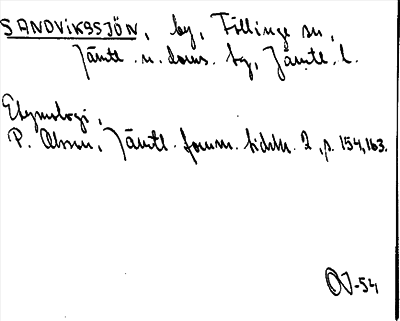 SANDVIKSSJÖN, by, Föllinge sn,
Jämtl. n. doms. by, Jämtl. l.
Etymologi,
P. Olsson, Jämtl. fornm. tidskr. 2, s. 154, 163.
OJ-54